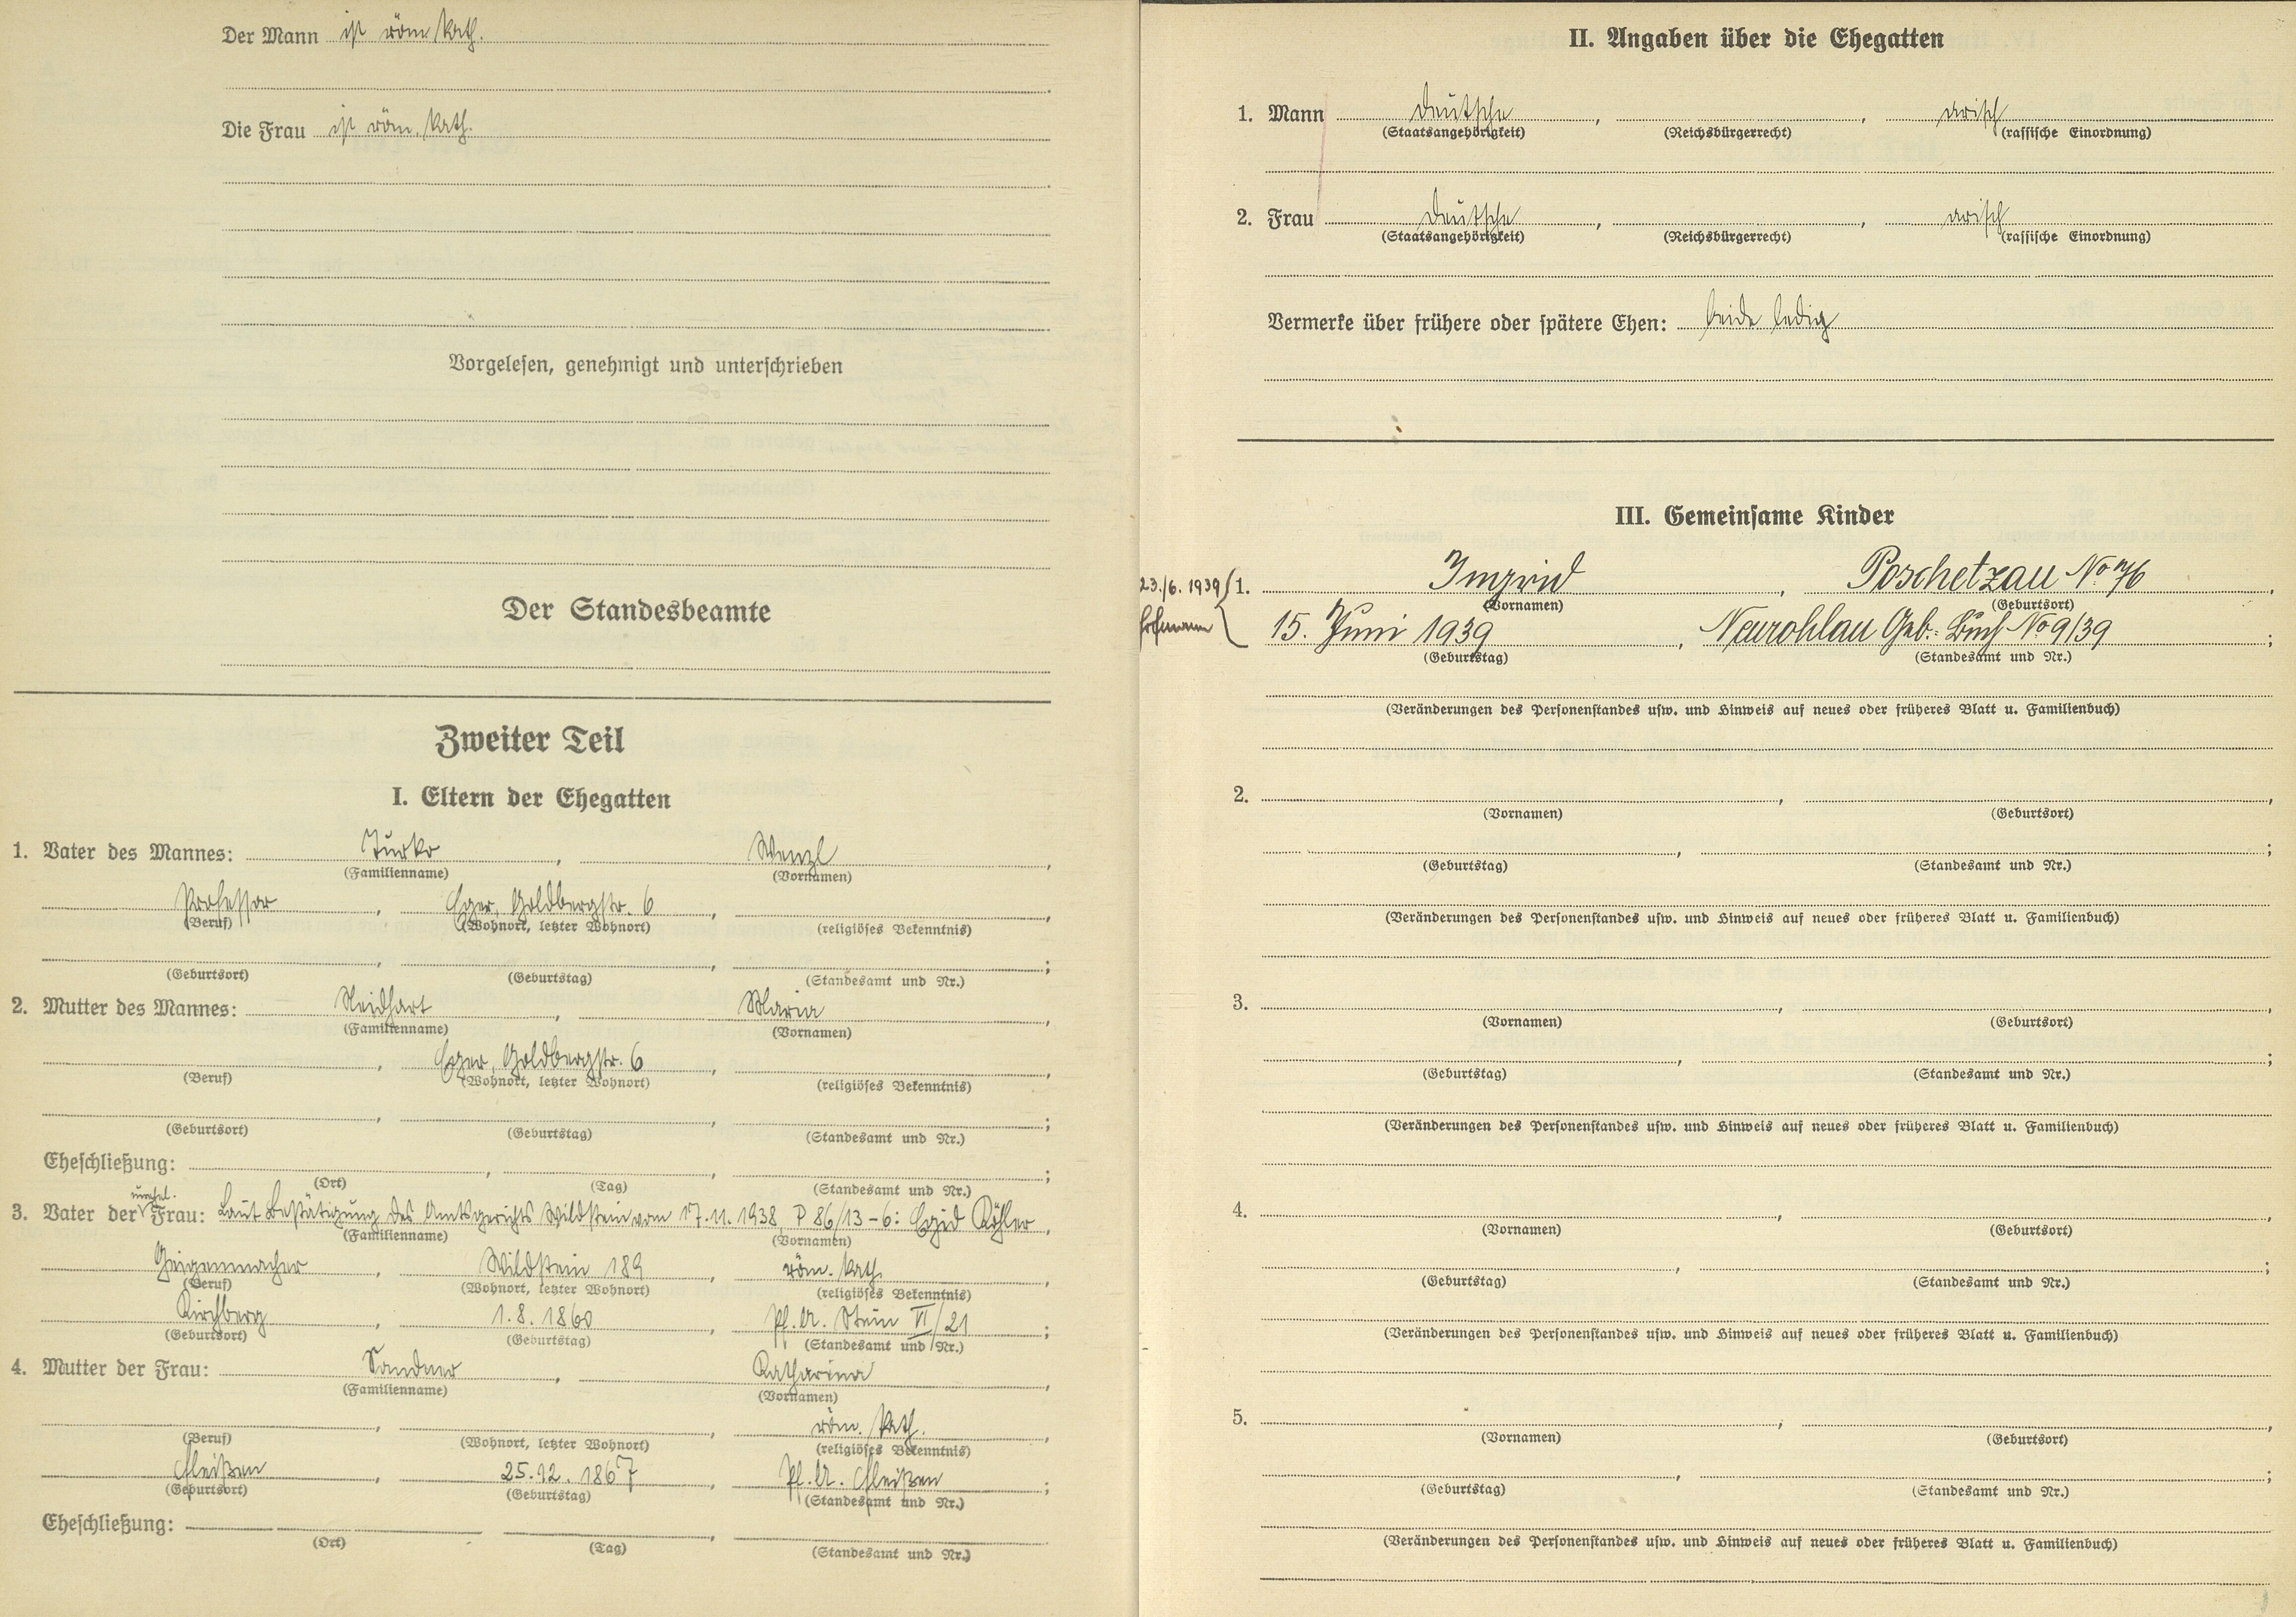 Der Mann ist röm. kath.
Die Frau ist röm. kath.
Vorgelesen, genehmigt und unterschrieben
Der Standesbeamte
Zweiter Teil
I. Eltern der Ehegatten
1. Vater des Mannes: Turko, Wenzl,
(Familienname) (Vornamen)
Professor, Eger, Goldbergstr. 6,
(Beruf) (Wohnort, letzter Wohnort) (religiöses Bekenntnis)
(Geburtsort) (Geburtstag) (Standesamt und Nr.)
2. Mutter des Mannes: Neidhart, Maria,
(Familienname) (Vornamen)
Eger, Goldbergstr. 6,
(Beruf) (Wohnort, letzter Wohnort) (religiöses Bekenntnis)
(Geburtsort) (Geburtstag) (Standesamt und Nr.)
Eheschließung:
(Ort) (Tag) (Standesamt und Nr.)
unehel.
3. Vater der Frau: Laut Bestätigung des Amtsgerichts Wildstein vom 17.11.1938, P 86/13-6: Egid Köhler,
(Familienname) (Vornamen)
Geigenmacher, Wildstein 189, röm. kath.,
(Beruf) (Wohnort, letzter Wohnort) (religiöses Bekenntnis)
Kirchberg, 1.8.1860, Pf. A. Stein VI/21;
(Geburtsort) (Geburtstag) (Standesamt und Nr.)
4. Mutter der Frau: Sandner, Katharina,
(Familienname) (Vornamen)
röm. kath.,
(Beruf) (Wohnort, letzter Wohnort) (religiöses Bekenntnis)
Fleißen, 25.12.1867, Pf. A. Fleißen;
(Geburtsort) (Geburtstag) (Standesamt und Nr.)
Eheschließung:
(Ort) (Tag) (Standesamt und Nr.)
II. Angaben über die Ehegatten
1. Mann deutsche, , arisch
(Staatsangehörigkeit) (Reichsbürgerrecht) (rassische Einordnung)
2. Frau deutsche, , arisch
(Staatsangehörigkeit) (Reichsbürgerrecht) (rassische Einordnung)
Vermerke über frühere oder spätere Ehen: beide ledig
III. Gemeinsame Kinder
23./6. 1939 1. Ingrid, Poschetzau No 76,
(Vornamen) (Geburtsort)
15. Juni 1939, Neurohlau Geb.-Buch No 9/39;
(Geburtstag) (Standesamt und Nr.)
(Veränderungen des Personenstandes usw. und Hinweis auf neues oder früheres Blatt u. Familienbuch)
2.
(Vornamen) (Geburtsort)
(Geburtstag) (Standesamt und Nr.)
(Veränderungen des Personenstandes usw. und Hinweis auf neues oder früheres Blatt u. Familienbuch)
3.
(Vornamen) (Geburtsort)
(Geburtstag) (Standesamt und Nr.)
(Veränderungen des Personenstandes usw. und Hinweis auf neues oder früheres Blatt u. Familienbuch)
4.
(Vornamen) (Geburtsort)
(Geburtstag) (Standesamt und Nr.)
(Veränderungen des Personenstandes usw. und Hinweis auf neues oder früheres Blatt u. Familienbuch)
5.
(Vornamen) (Geburtsort)
(Geburtstag) (Standesamt und Nr.)
(Veränderungen des Personenstandes usw. und Hinweis auf neues oder früheres Blatt u. Familienbuch)